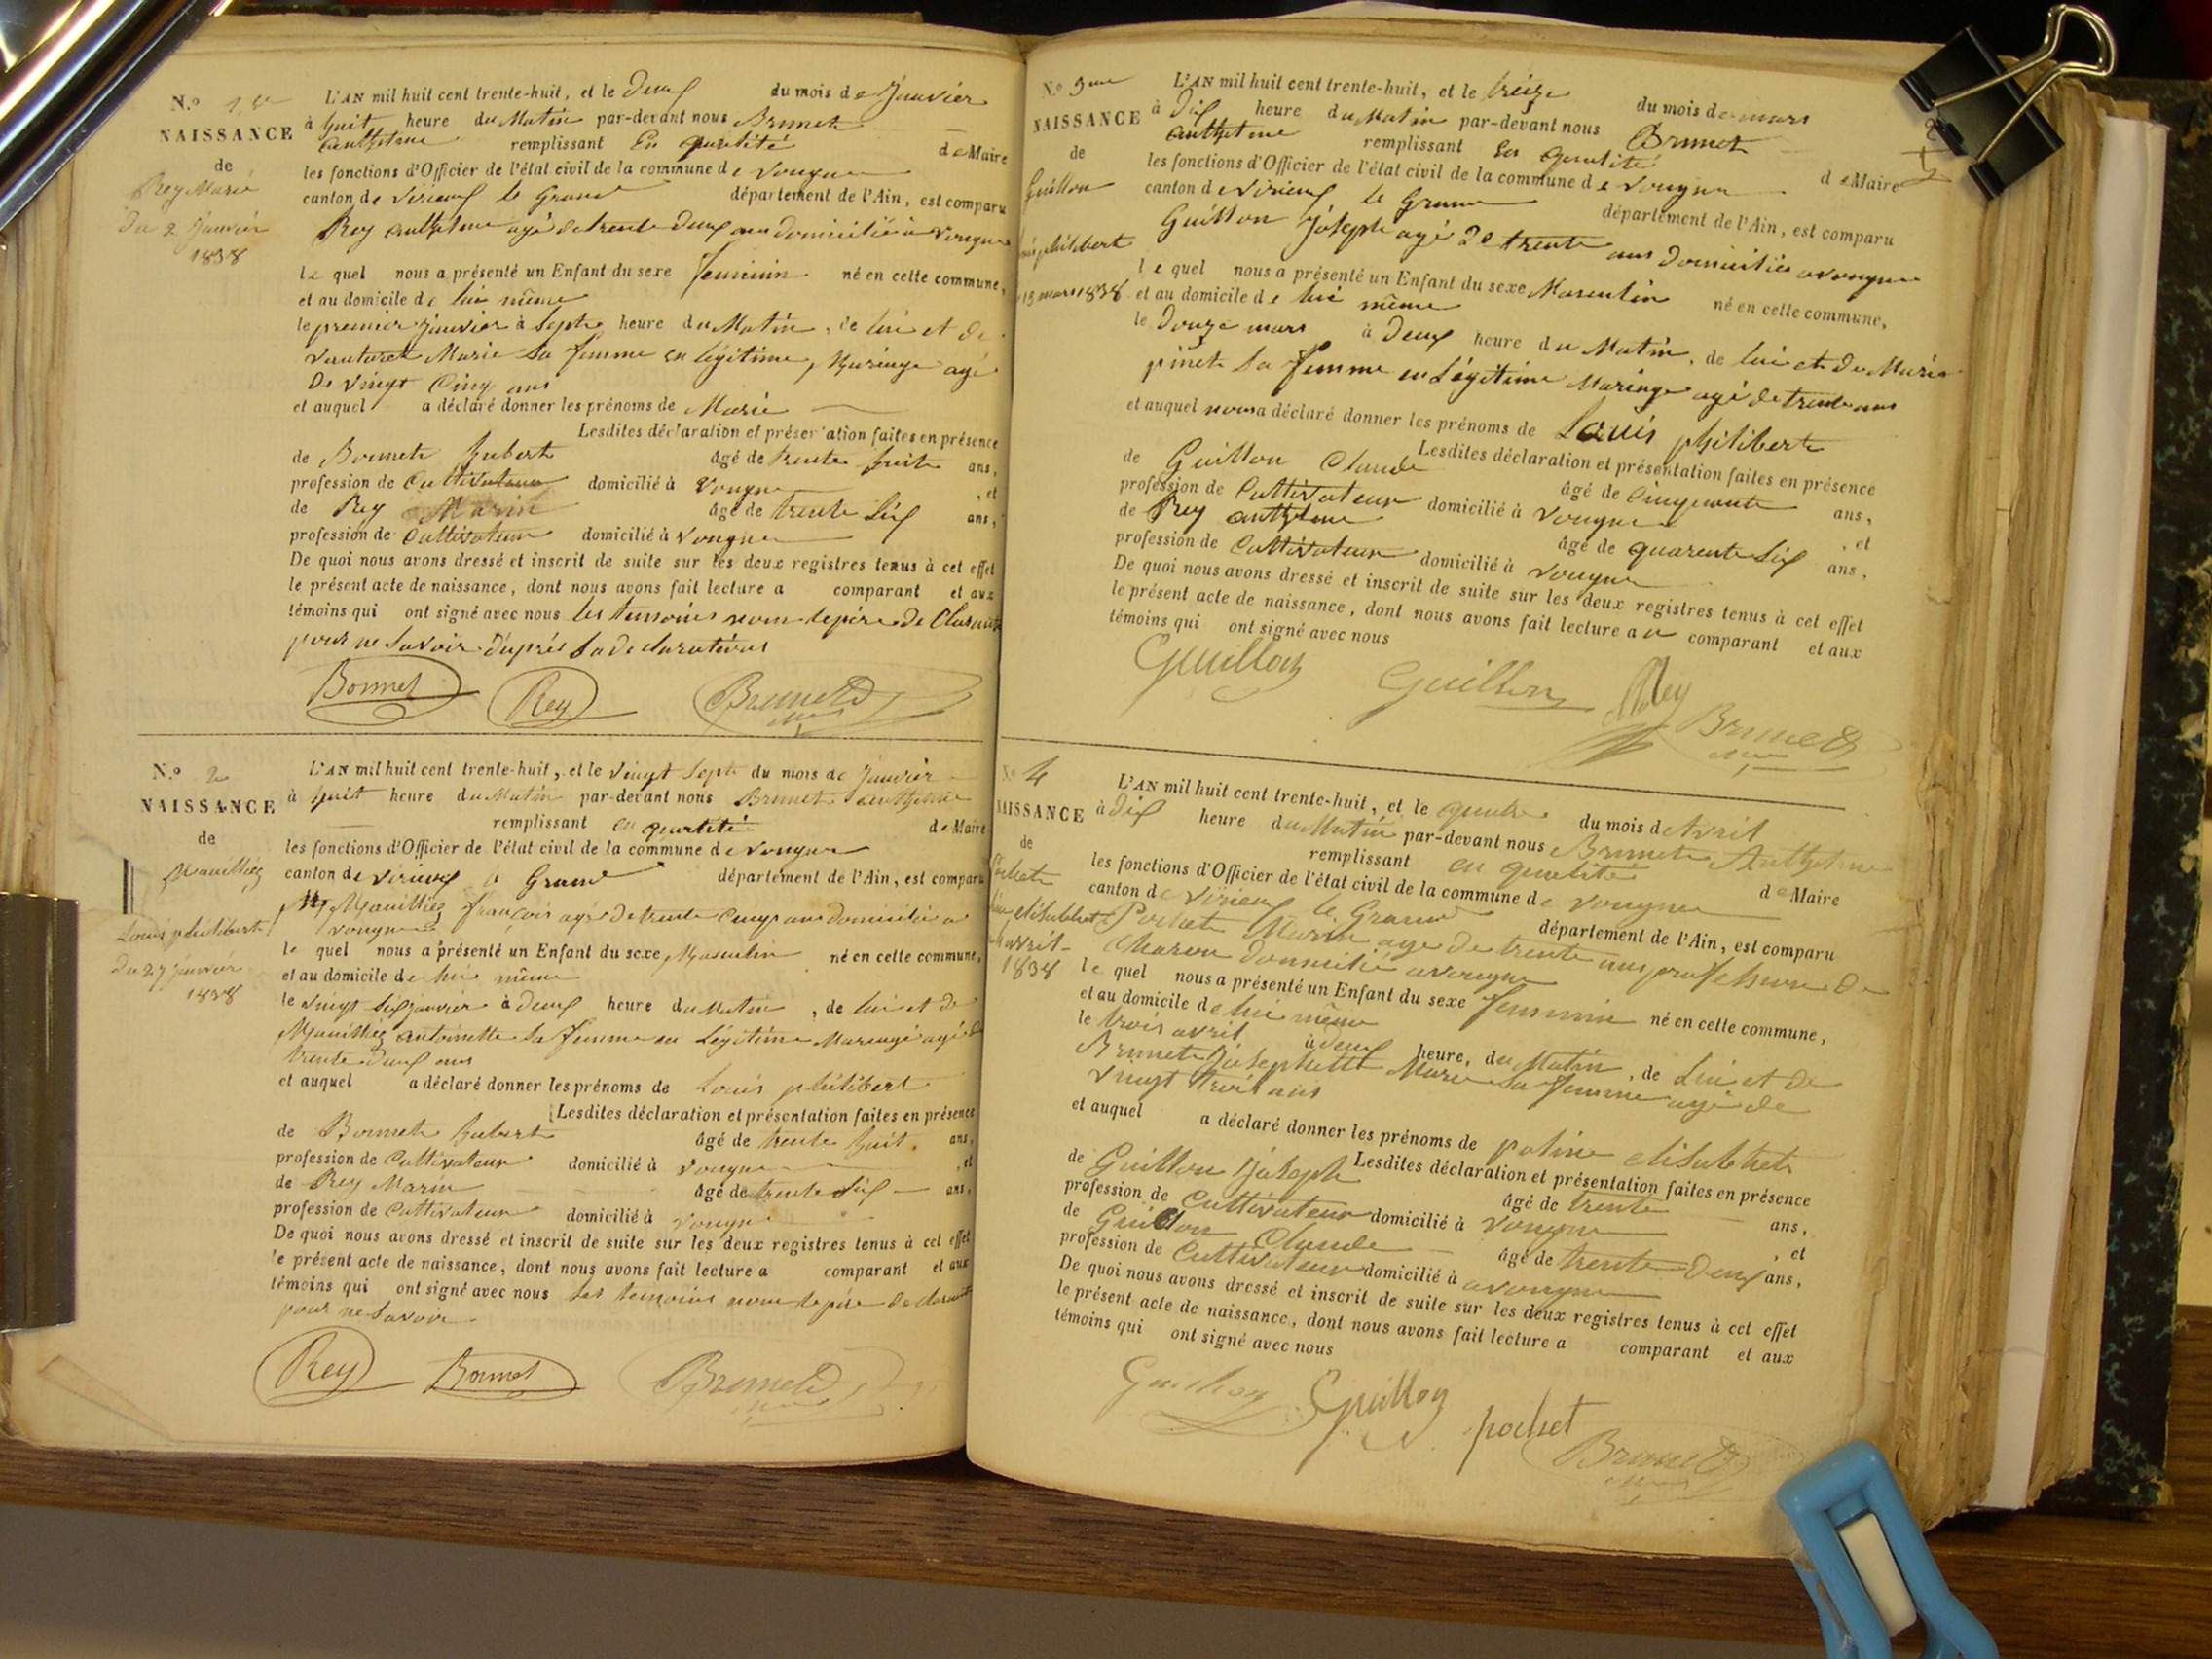 N.o 1er
NAISSANCE
de
Rey Marie
Du 2 Janvier
1838
L'AN mil huit cent trente-huit, et le Deux du mois de Janvier
à huit heure du Matin par-devant nous Brunet
anthelme remplissant en qualité de Maire
les fonctions d'Officier de l'état civil de la commune de vongne
canton de virieux le Grand département de l'Ain, est comparu
Rey anthelme agé de trente deux ans domicilié a vongne
le quel nous a présenté un Enfant du sexe feminin né en cette commune,
et au domicile de lui même
le premier janvier à Septe heure du Matin, de lui et de
Marie sa femme en légitime, Mariage agé
De vingt Cinq ans
et auquel a déclaré donner les prénoms de Marie
Lesdites déclaration et présentation faites en présence
de Bonnet hubert âgé de trente huit ans,
profession de Cultivateur domicilié à vongne, et
de Rey Marin âgé de trente Six ans,
profession de Cultivateur domicilié à vongne
De quoi nous avons dressé et inscrit de suite sur les deux registres tenus à cet effet
le présent acte de naissance, dont nous avons fait lecture a comparant et aux
témoins qui ont signé avec nous les temoins non le père de Clarant
pour ne Savoir d'après sa declaration
Bonnet Rey Brunet
N.o 2
NAISSANCE
de
Louis philibert
du 27 janvier
1838
L'AN mil huit cent trente-huit, et le vingt Sept du mois de janvier
à huit heure du Matin par-devant nous Brunet anthelme
remplissant en qualité de Maire
les fonctions d'Officier de l'état civil de la commune de vongne
canton de virieux le Grand département de l'Ain, est comparu
françois agé de trente Cinq ans domicilié a
vongne
le quel nous a présenté un Enfant du sexe Masculin né en cette commune,
et au domicile de lui même
le vingt Six janvier à deux heure du Matin, de lui et de
antoinette sa femme en Légitime Mariage agé de
trente deux ans
et auquel a déclaré donner les prénoms de Louis philibert
Lesdites déclaration et présentation faites en présence
de Bonnet hubert âgé de trente huit ans,
profession de Cultivateur domicilié à vongne, et
de Rey Marin âgé de trente Six ans,
profession de Cultivateur domicilié à vongne
De quoi nous avons dressé et inscrit de suite sur les deux registres tenus à cet effet
le présent acte de naissance, dont nous avons fait lecture a comparant et aux
témoins qui ont signé avec nous les temoins non le père de Clarant
pour ne Savoir
Rey Bonnet Brunet
N.o 3me
NAISSANCE
de
Guillon
philibert
13 mars 1838
L'AN mil huit cent trente-huit, et le treize du mois de mars
à Dix heure du Matin par-devant nous Brunet
anthelme remplissant en qualité de Maire
les fonctions d'Officier de l'état civil de la commune de vongne
canton de virieux le Grand département de l'Ain, est comparu
Guillon joseph agé De trente ans domicilié a vongne
le quel nous a présenté un Enfant du sexe Masculin né en cette commune,
et au domicile de lui même
le Douze mars à Deux heure du Matin, de lui et de Marie
pinet sa femme en Légitime Mariage agé de trente ans
et auquel nous a déclaré donner les prénoms de Louis philibert
Lesdites déclaration et présentation faites en présence
de Guillon Claude âgé de Cinquante ans,
profession de Cultivateur domicilié à vongne, et
de Rey anthelme âgé de quarente Six ans,
profession de Cultivateur domicilié à vongne
De quoi nous avons dressé et inscrit de suite sur les deux registres tenus à cet effet
le présent acte de naissance, dont nous avons fait lecture a u comparant et aux
témoins qui ont signé avec nous
Guillon Guillon Rey Brunet
No 4
NAISSANCE
de
avril
1838
L'AN mil huit cent trente-huit, et le quatre du mois d Avril
à Dix heure du Matin par-devant nous Brunet Anthelme
remplissant en qualité de Maire
les fonctions d'Officier de l'état civil de la commune de vongne
canton de virieux le Grand département de l'Ain, est comparu
Pochet Marin agé de trente ans professeure De
domicilié a vongne
le quel nous a présenté un Enfant du sexe feminin né en cette commune,
et au domicile de lui même
le trois avril à deux heure, du Matin, de Lui et De
Brunet Marie sa femme agé de
vingt trois ans
et auquel a déclaré donner les prénoms de poline elisabhet
Lesdites déclaration et présentation faites en présence
de Guillon Joseph âgé de trente ans,
profession de Cultivateur domicilié à vongne, et
de Guillon Claude âgé de trente Deux ans,
profession de Cultivateur domicilié à avongne
De quoi nous avons dressé et inscrit de suite sur les deux registres tenus à cet effet
le présent acte de naissance, dont nous avons fait lecture a comparant et aux
témoins qui ont signé avec nous
Guillon Guillon pochet Brunet